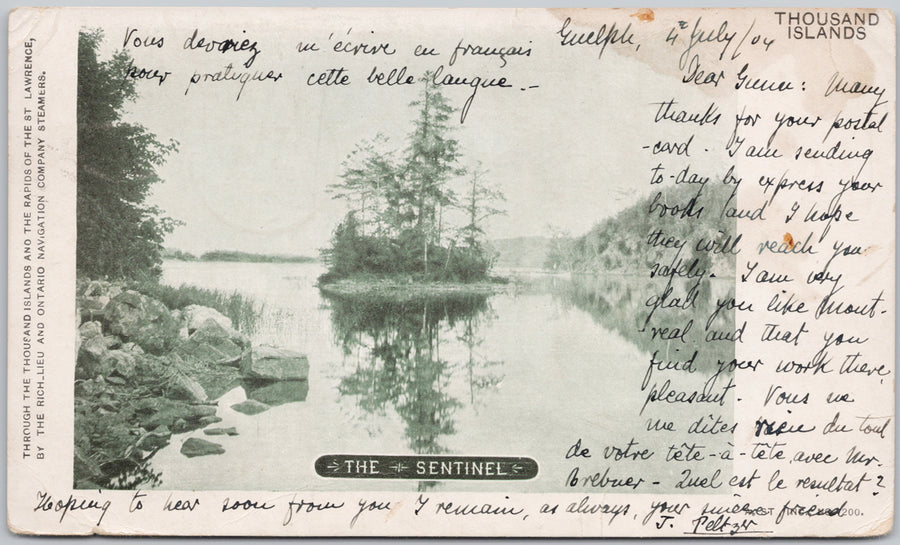 THROUGH THE THOUSAND ISLANDS AND THE RAPIDS OF THE ST LAWRENCE,
BY THE RICH_LIEU AND ONTARIO NAVIGATION COMPANY STEAMERS.
THOUSAND
ISLANDS
Vous devriez m'écrire en français
pour pratiquer cette belle langue.-
Guelph, 4th July/04
Dear Gunn: Many
thanks for your postal
-card. I am sending
to-day by express your
books and I hope
they will reach you
safely. I am very
glad you like Mont-
real and that you
find your work there
pleasant. Vous ne
me dîtes rien du tout
de votre tête-à-tête avec Mr.
Brebner - Quel est le resultat?
THE SENTINEL
Hoping to hear soon from you I remain, as always, your sincere friend
J. Peltzer
200.